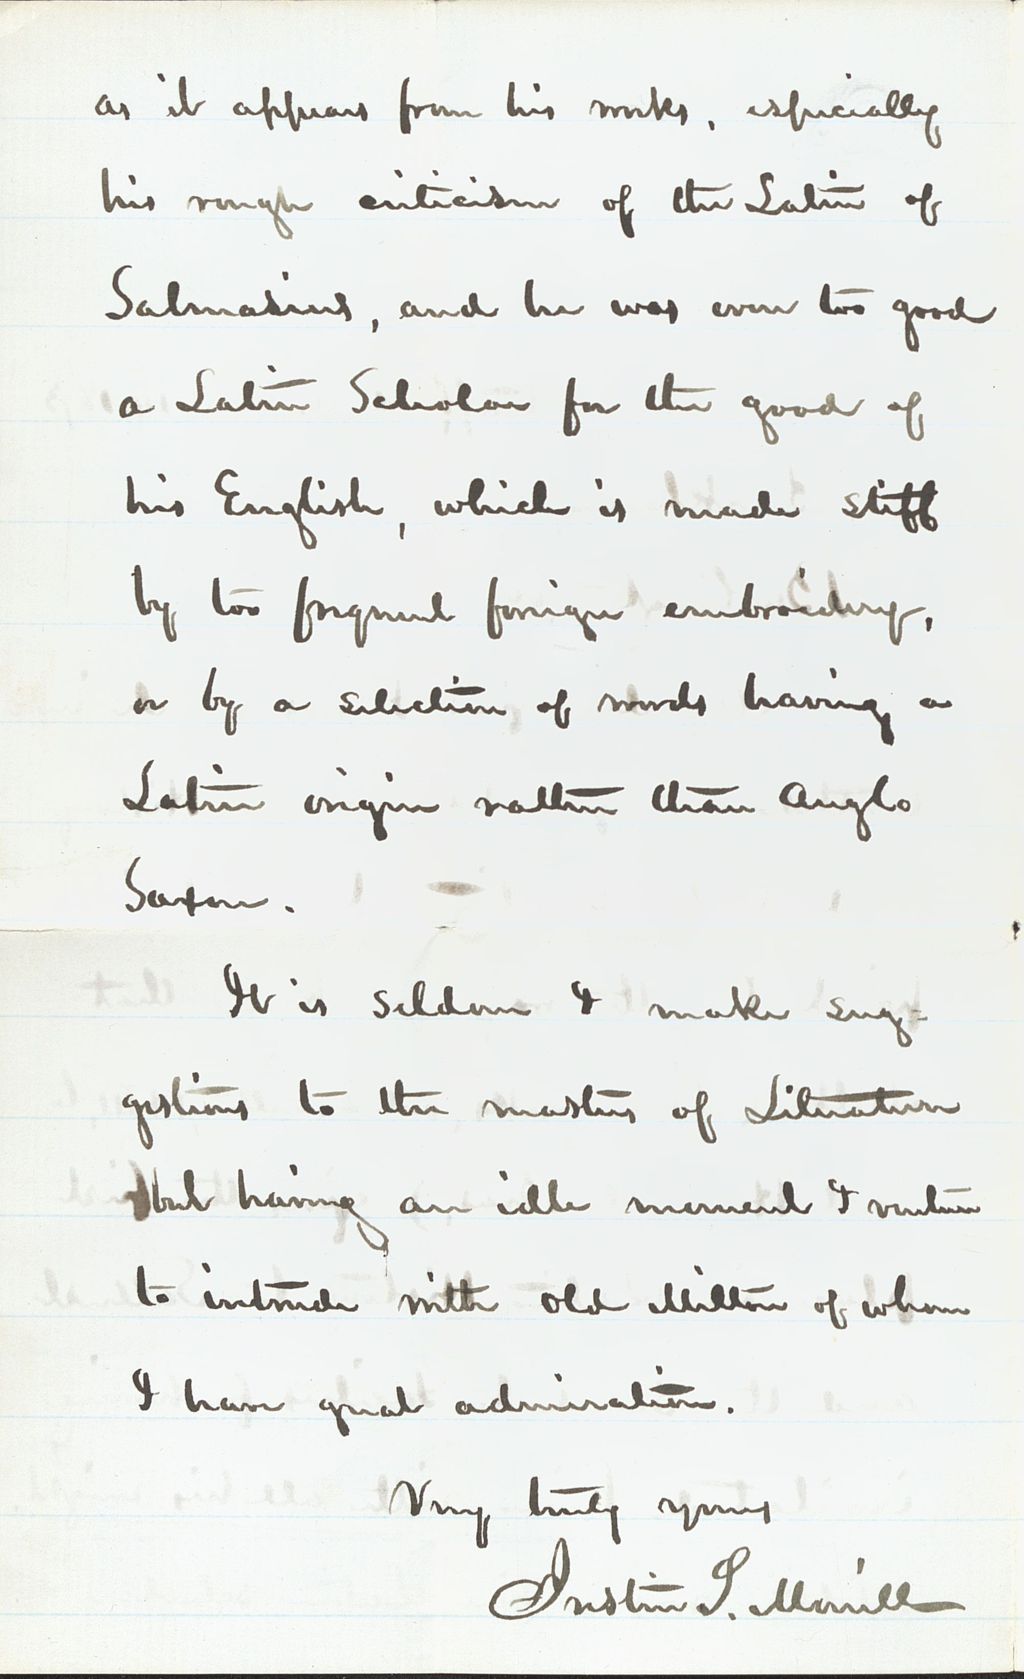 as it appears from his works, especially
his rough criticism of the Latin of
Salmasius, and he was even too good
a Latin Scholar for the good of
his English, which is made stiff
by too frequent foreign embroidery,
or by a selection of words having a
Latin origin rather than Anglo
Saxon.
It is seldom I make sug-
gestions to the masters of Literature
but having an idle moment I venture
to intrude with old Milton of whom
I have great admiration.
Very truly yours
Justin S. Morrill